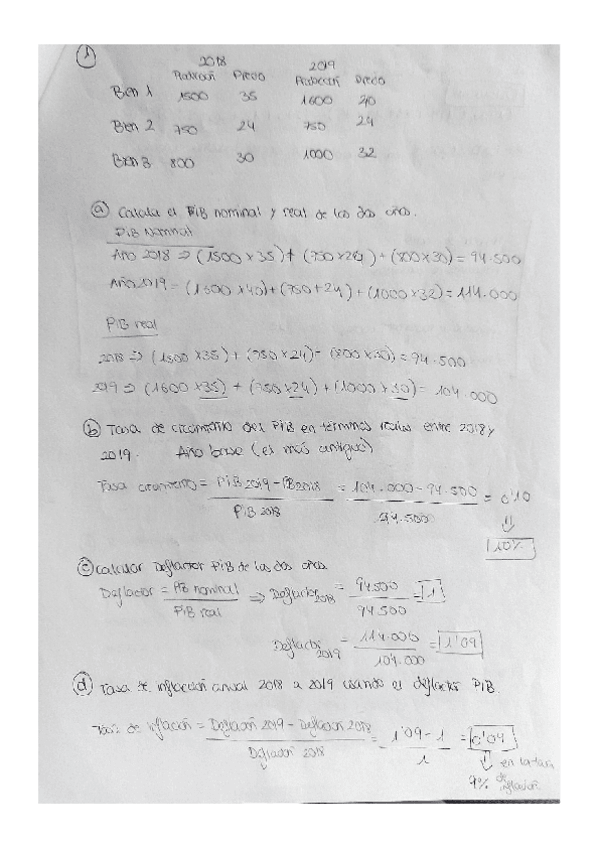 1
2018 2019
Precio Precio
Bien 1 1500 35 1600 40
Bien 2 750 24 750 24
Bien 3 800 30 1000 32
a) Calcular el PIB nominal y real de los dos años.
PIB Nominal
Año 2018 => (1500 x 35) + (750 x 24) + (800 x 30) = 94.500
Año 2019 = (1500 x 40) + (750 + 24) + (1000 x 32) = 114.000
PIB real
2018 => (1500 x 35) + (750 x 24) - (800 x 30) = 94.500
2019 => (1600 x 35) + (750 x 24) + (1000 x 30) = 104.000
b) Tasa de crecimiento del PIB en términos reales entre 2018 y
2019. Año base (el más antiguo)
Tasa crecimiento = PIB 2019 - PIB 2018 / PIB 2018 = 104.000 - 94.500 / 94.5000 = 0'10
10%
c) Calcular Deflactor PIB de los dos años
Deflactor = PIB nominal / PIB real => Deflactor 2018 = 94500 / 94.500 = 1
Deflactor 2019 = 114.000 / 104.000 = 1'09
d) Tasa de inflación anual 2018 a 2019 usando el deflactor PIB.
Tasa de inflación = 2019 - 2018 / 2018 = 1'09 - 1 / 1 = 0'09
en la tasa
9% de inflación